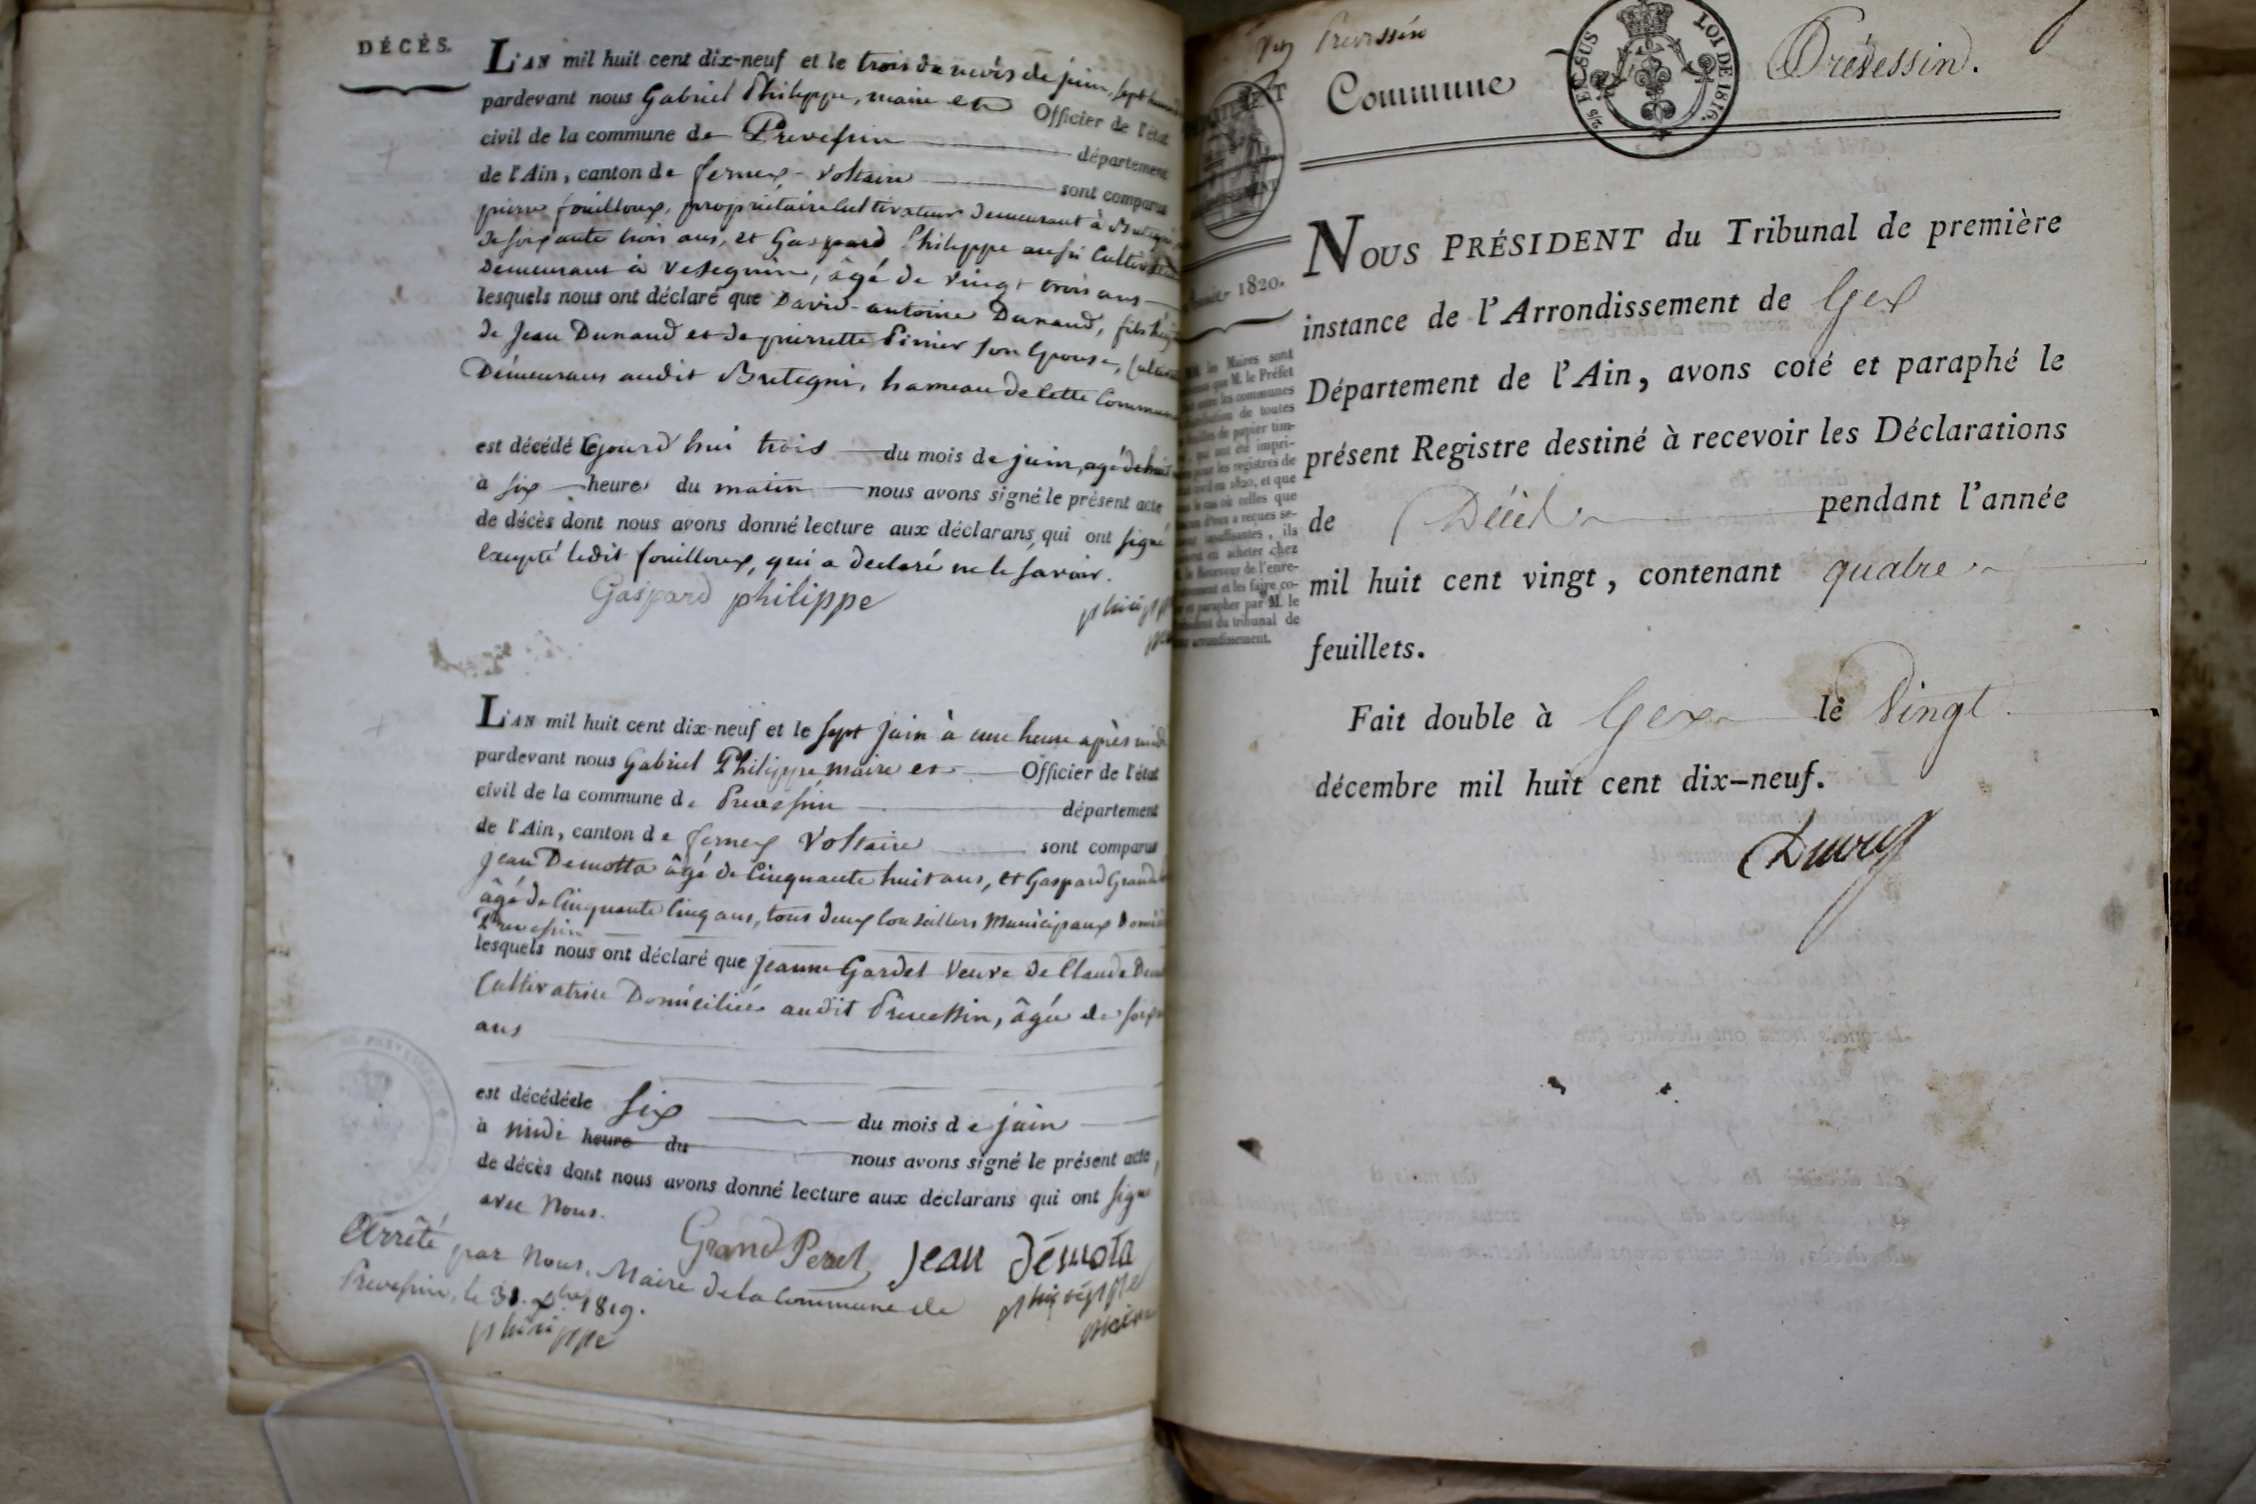 DÉCÈS.
L'AN mil huit cent dix-neuf et le trois du mois de juin, sept heures
pardevant nous Gabriel Philippe, maire et Officier de l'état
civil de la commune de Prevessin département
de l'Ain, canton de ferney-Voltaire sont comparus
pierre fouilloux, propriétaire Cultivateur demeurant à Bretigni
de soixante trois ans, et Gaspard Philippe aussi Cultivateur
Demeurant à Vesegnin, âgé de vingt trois ans
lesquels nous ont déclaré que David-antoine Dunand, fils
de Jean Dunand et de pierrette Pinier son Epouse,
Demeurans audit Bretegni, hameau de cette Commune
est décédé le jourd'hui trois du mois de juin, agé de
à six heure du matin nous avons signé le présent acte
de décès dont nous avons donné lecture aux déclarans, qui ont signé
Excepté ledit fouilloux, qui a declaré ne le savoir.
Gaspard philippe
philippe
L'AN mil huit cent dix-neuf et le sept juin à une heure après midi
pardevant nous Gabriel Philippe, maire et Officier de l'état
civil de la commune de Prevessin département
de l'Ain, canton de ferney Voltaire sont comparus
Jean Demotta âgé de Cinquante huit ans, et Gaspard
âgé de Cinquante Cinq ans, tous deux Conseillers Municipaux
Prevessin
lesquels nous ont déclaré que Jeanne Gardet Veuve de Claude
Cultivatrice Domiciliée audit Prevessin, âgée de
ans
est décédée le six du mois de juin
à midi heure du nous avons signé le présent acte,
de décès dont nous avons donné lecture aux déclarans qui ont signé
avec Nous.
Grand Peret Jean Démota
philippe
maire
Arrêté par Nous, Maire de la Commune de
Prevessin, le 31. Xbre 1819.
philippe
Prevessin
Commune Prévessin.
2/5 EN SUS LOI DE 1816.
1820.
NOUS PRÉSIDENT du Tribunal de première
instance de l'Arrondissement de Gex
Département de l'Ain, avons coté et paraphé le
présent Registre destiné à recevoir les Déclarations
de Décès pendant l'année
mil huit cent vingt, contenant quatre
feuillets.
Fait double à Gex le Vingt
décembre mil huit cent dix-neuf.
les Maires sont
que M. le Préfet
les communes
de toutes
de papier tim-
qui ont été impri-
pour les registres de
en 1820, et que
le cas où celles que
d'eux a reçues se-
insuffisantes, ils
en acheter chez
le Receveur de l'enre-
et les faire co-
et parapher par M. le
du tribunal de
arrondissement.